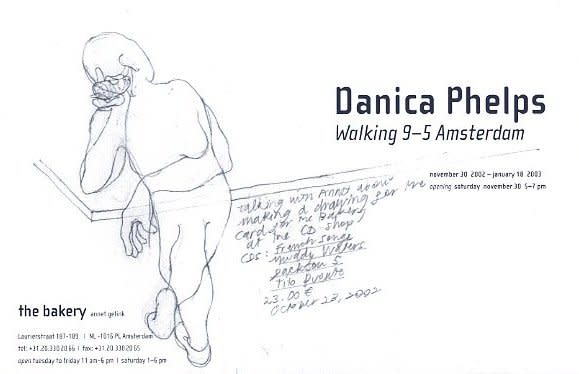 Danica Phelps
Walking 9–5 Amsterdam
november 30 2002 – january 18 2003
opening saturday november 30 5–7 pm
talking with Annet about
making a drawing for the
card for the Bakery
at the CD shop
CDS: French Songs
Muddy Waters
Jackson 5
Tito Puente
23.00 €
October 23, 2002
the bakery annet gelink
Laurierstraat 187-189 | NL -1016 PL Amsterdam
tel: +31.20.330 20 66 | fax: +31.20.330 20 65
open tuesday to friday 11 am-6 pm | saturday 1-6 pm